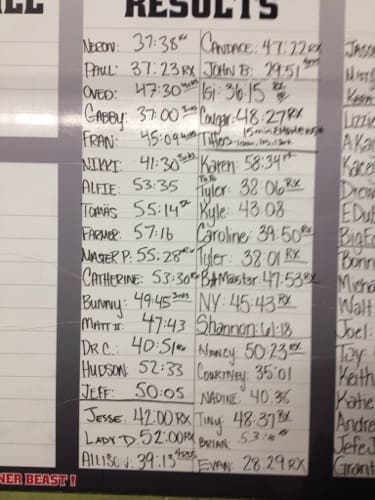 RESULTS
NERON: 37:38 RX
PAUL: 37:23 RX
OVED: 47:30
GABBY: 37:00
FRAN: 45:09
NIKKI: 41:30
ALFIE: 53:35
TOMÁS 55:14
FARMER: 57:16
MASTER P: 55:28 RX
CATHERINE: 53:30 RX
BUNNY: 49:45
MATT II: 47:43
DR C.: 40:51 RX
HUDSON: 52:33
JEFF: 50:05
JESSE: 42:00 RX
LADY D: 52:00 RX
ALLISON: 39:13
CANDACE: 47:22 RX
JOHN B: 29:51
ISI: 36:15 RX
Cougar: 48:27 RX
Karen: 58:34
Tyler: 38:06 RX
Kyle: 43:08
Caroline: 39:50 RX
Tyler: 38:01 RX
47:53 RX
NY: 45:43 RX
Shannon: 61:18
Nancy: 50:23 RX
COURTNEY: 35:01
NADINE: 40:38
TINY: 48:37 RX
BRIAN:
EVAN: 28:29 RX
JASON
Lizzie
Drew
Bonn
Walt
Joel:
Keith
Katie
Andre
Jefe J
Grant
NER BEAST!